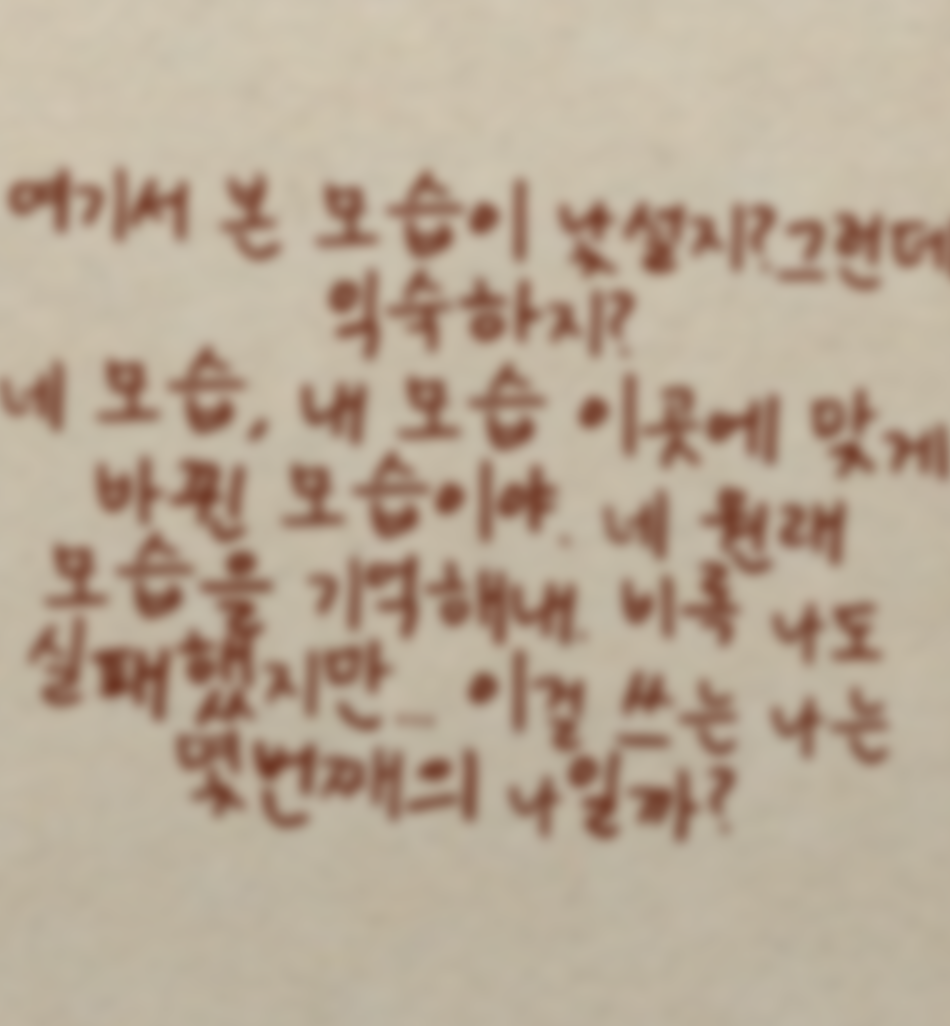 여기서 본 모습이 낯설지? 그런데
익숙하지?
네 모습, 내 모습 이곳에 맞게
바뀐 모습이야. 네 원래
모습을 기억해내. 비록 나도
실패했지만... 이걸 쓰는 나는
몇번째의 나일까?